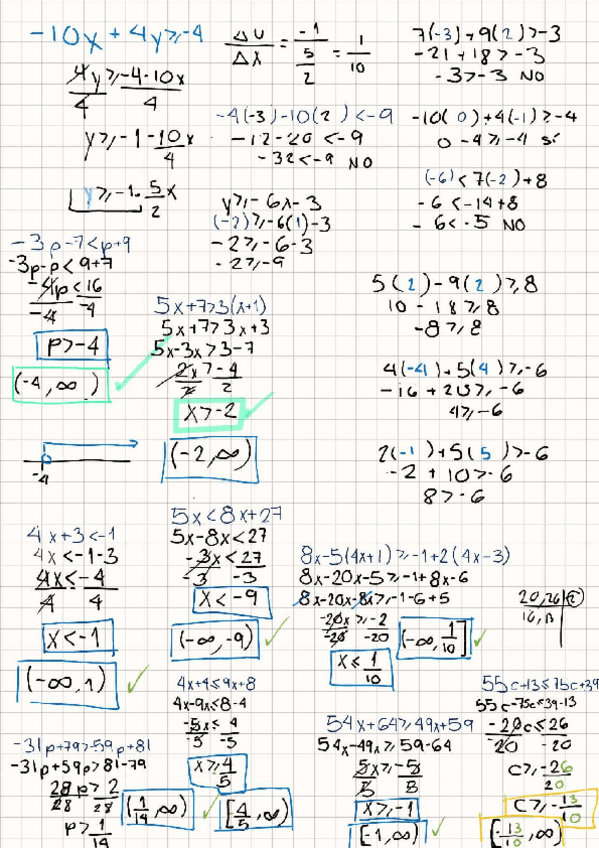 -10x + 4y ≥ -4
4y ≥ -4-10x
4 4
y ≥ -1 -10x
4
y ≥ -1 · 5x
2
ΔU = -1 = 1
ΔX 5 10
2
7(-3)+9(2) > -3
-21 + 18 > -3
-3 > -3 NO
-4(-3)-10(2) < -9
-12-20 < -9
-32 < -9 NO
-10(0)+4(-1) ≥ -4
0 -4 ≥ -4 sí
(-6) < 7(-2)+8
-6 < -14+8
-6 < -5 NO
y ≥ -6x-3
(-2) ≥ -6(1)-3
-2 ≥ -6-3
-2 ≥ -9
-3p-7 < p+9
-3p-p < 9+7
-4p < 16
-4 -4
p > -4
(-4, ∞)
-4
5x+7 > 3(x+1)
5x+7 > 3x+3
5x-3x > 3-7
2x > -4
2 2
x > -2
(-2, ∞)
5(2)-9(2) ≥ 8
10 - 18 ≥ 8
-8 ≥ 8
4(-4)+5(4) ≥ -6
-16 + 20 ≥ -6
4 ≥ -6
2(-1)+5(5) > -6
-2 + 10 > -6
8 > -6
4x+3 < -1
4x < -1-3
4x < -4
4 4
x < -1
(-∞, 1)
5x < 8x+27
5x-8x < 27
-3x < 27
-3 -3
x < -9
(-∞, -9)
8x-5(4x+1) ≥ -1+2(4x-3)
8x-20x-5 ≥ -1+8x-6
8x-20x-8x ≥ -1-6+5
-20x ≥ -2
-20 -20
x ≤ 1
10
(-∞, 1]
10
20,26 2
10,13
4x+4 ≤ 9x+8
4x-9x ≤ 8-4
-5x ≤ 4
-5 -5
x ≥ 4
5
[4, ∞)
5
-31p+79 > -59p+81
-31p+59p > 81-79
28p > 2
28 28
p > 1
14
(1, ∞)
14
54x+64 ≥ 49x+59
54x-49x ≥ 59-64
5x ≥ -5
5 5
x ≥ -1
[-1, ∞)
55c+13 ≤ 75c+39
55c-75c ≤ 39-13
-20c ≤ 26
20 -20
c ≥ -26
20
c ≥ -13
10
[-13, ∞)
10